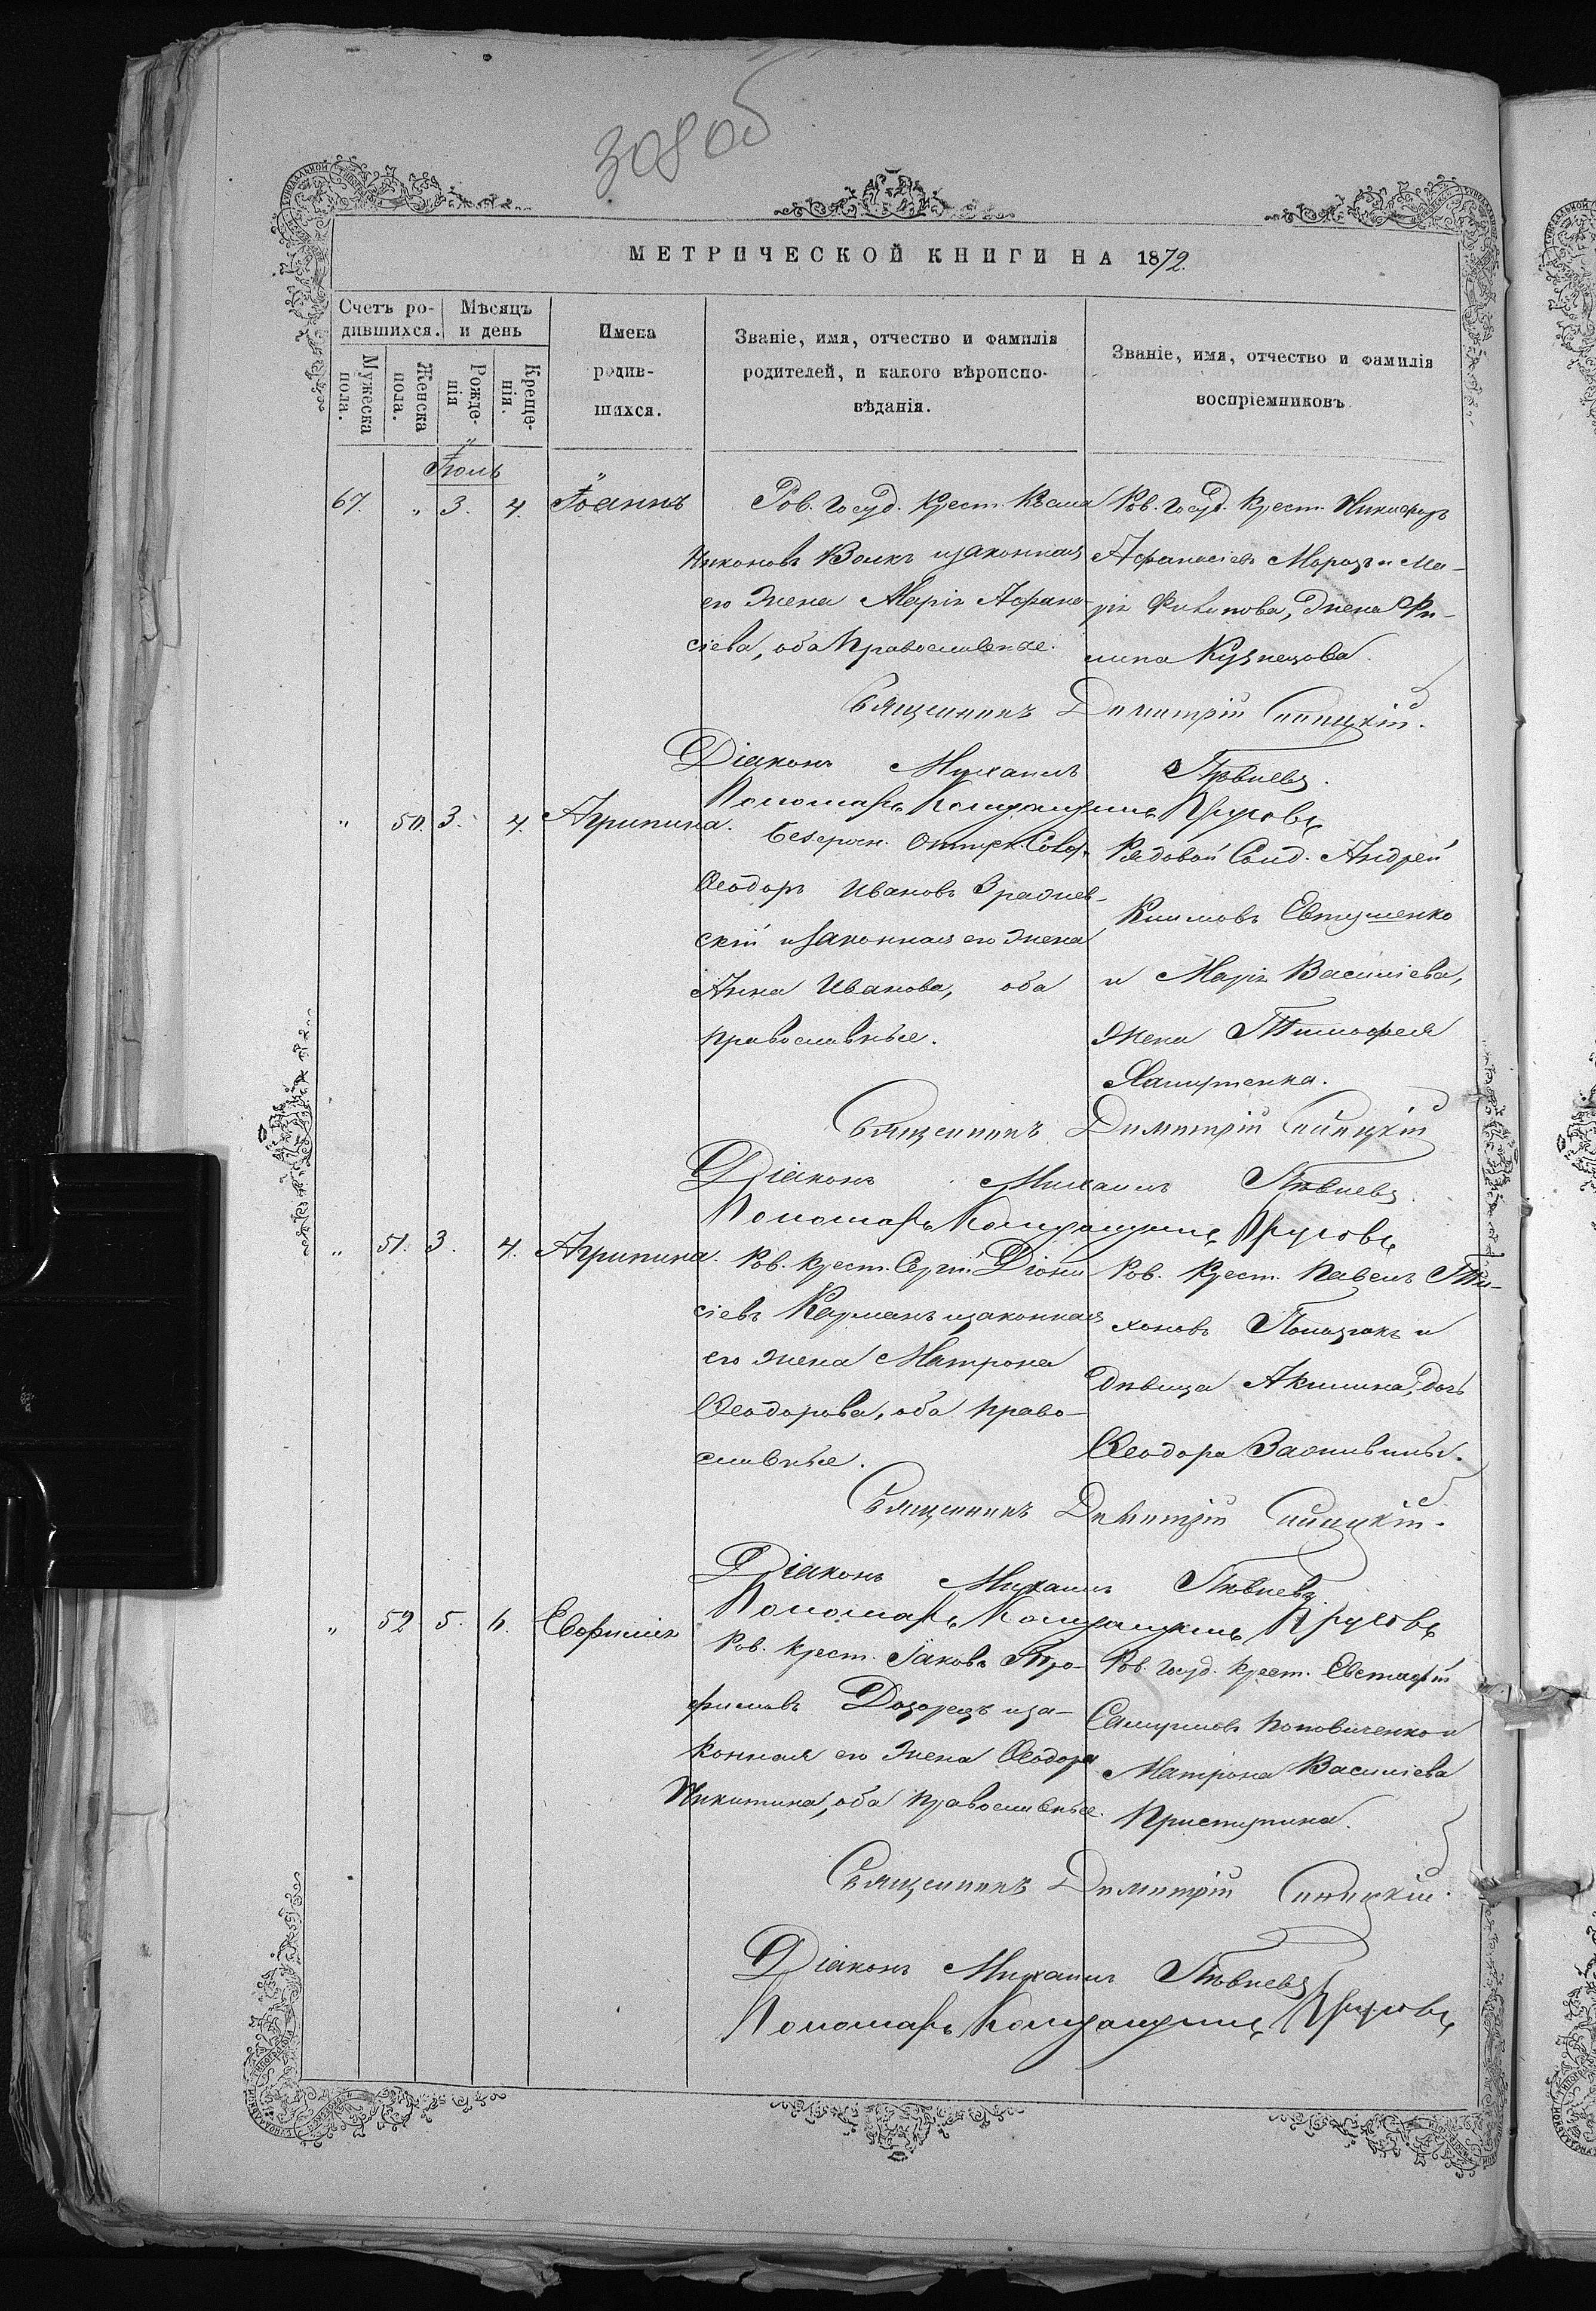 308 об
МЕТРИЧЕСКОЙ КНИГИ НА 1872.
Счетъ ро-
дившихся.
Мѣсяцъ
и день
Мужеска
пола.
Женска
пола.
Рожде-
нія
Креще-
нія.
Имена
родив-
шихся.
Званіе, имя, отчество и фамилія
родителей, и какого вѣроиспо-
вѣданія.
Званіе, имя, отчество и фамилія
воспріемниковъ
Іюль
67. „ 3. 4. Іоаннъ
Ров. Госуд. Крест. Козма
Никоновъ Волкъ изаконная
его жена Марія Афана-
сіева, оба православные.
Ров. Госуд. Крест. Никифоръ
Афанасіевъ Морозъ и Ма-
рія Филипова, жена Фи-
липа Кузнецова.
Священникъ Димитрій
Діаконъ Михаилъ Пѣвневъ.
Пономарь Круговъ
„ 50. 3. 4. Агрипина.
Безсрочн. Отпуск.
Ѳеодоръ Ивановъ
скій изаконная его жена
Анна Иванова, оба
православные.
Рядовой Солд. Андрей
Климовъ Евтушенко
и Марія Василіева,
жена Тимофея
Священникъ Димитрій
Діаконъ Михаилъ Пѣвневъ
Пономарь Круговъ
„ 51. 3. 4. Агрипина.
Ров. Крест. Сергій Діони
сіевъ Карманъ изаконная
его жена Матрона
Ѳеодорова, оба право-
славные.
Ров. Крест. Павелъ Ти-
хоновъ и
Дѣвица Акилина, дочь
Ѳеодора
Священникъ Димитрій
Діаконъ Михаилъ Пѣвневъ
Пономарь Круговъ
„ 52 5. 6. Евфимія
Ров. Крест. Іаковъ Тро-
фимовъ Дозорецъ иза-
конная его жена Ѳеодора
Никитина, оба православные.
Ров. Госуд. Крест. Евстафій
Самуиловъ Поповиченко и
Матрона Василіева
Приступина.
Священникъ Димитрій
Діаконъ Михаилъ Пѣвневъ
Пономарь Круговъ